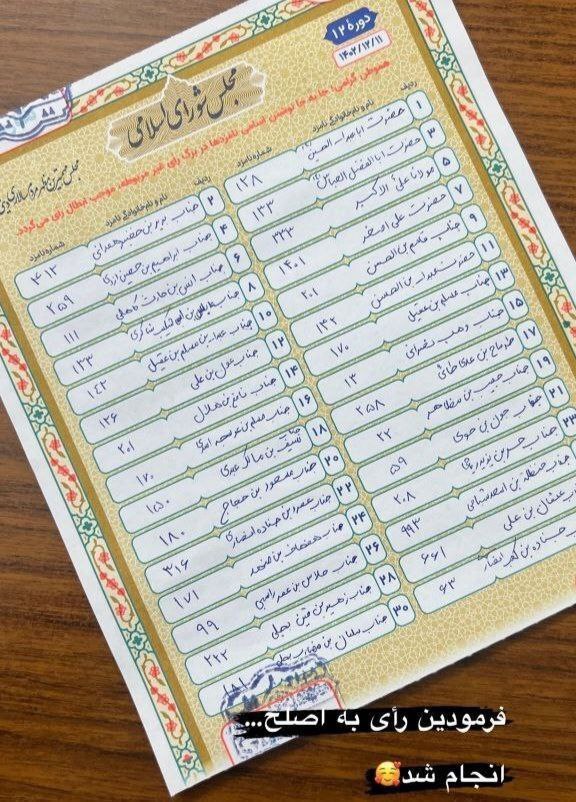 دورهٔ ۱۲
۱۴۰۲/۱۲/۱۱
مجلس شورای اسلامی
هموطن گرامی؛ جا به جا نوشتن اسامی نامزدها در برگ رأی غیر مربوطه، موجب ابطال رأی می‌گردد.
ردیف نام و نام‌خانوادگی نامزد شماره نامزد
۱ حضرت اباعبدالله الحسین ۱۲۸
۳ حضرت اباالفضل العباس ۱۳۳
۵ مولانا علی الاکبر ۳۳۳
۷ حضرت علی اصغر ۱۴۰۱
۹ جناب قاسم بن الحسن ۲۰۱
۱۱ حضرت عبدالله بن الحسن ۱۴۲
۱۳ جناب مسلم بن عقیل ۱۷۰
۱۵ جناب وهب نصرانی ۱۳
۱۷ طرماح بن عدی طائی ۲۵۸
۱۹ جناب حبیب بن مظاهر ۲۲
۲۱ جناب جون بن حوی ۵۹
۲۳ جناب حر بن یزید ریاحی ۲۰۸
جناب حنظله بن اسعد ۹۹۳
عثمان بن علی ۶۶۱
جناده بن کعب انصار ۶۳
ردیف نام و نام‌خانوادگی نامزد شماره نامزد
۲ جناب بریر بن خضیر همدانی ۴۱۳
۴ جناب ابراهیم بن حصین ازدی ۲۵۹
۶ جناب انس بن حارث کاهلی ۱۱۱
۸ جناب ۱۳۳
۱۰ جناب عبدالله بن مسلم بن عقیل ۱۴۳
۱۲ جناب عون بن علی ۱۲۶
۱۴ جناب نافع بن هلال ۲۰۱
۱۶ جناب مسلم بن عوسجه اسدی ۱۷۰
۱۸ جناب سیف بن مالک عبدی ۱۵۰
۲۰ جناب مسعود بن حجاج ۱۸۰
۲۲ جناب عمرو بن جناده انصاری ۳۱۶
۲۴ جناب ۱۷۱
۲۶ جناب حلاس بن عمرو راسبی ۹۹
۲۸ جناب زهیر بن قین بجلی ۲۲۲
۳۰ جناب سلمان بن مضارب بجلی ۱۸۱
فرمودین رأی به اصلح...
انجام شد🥰